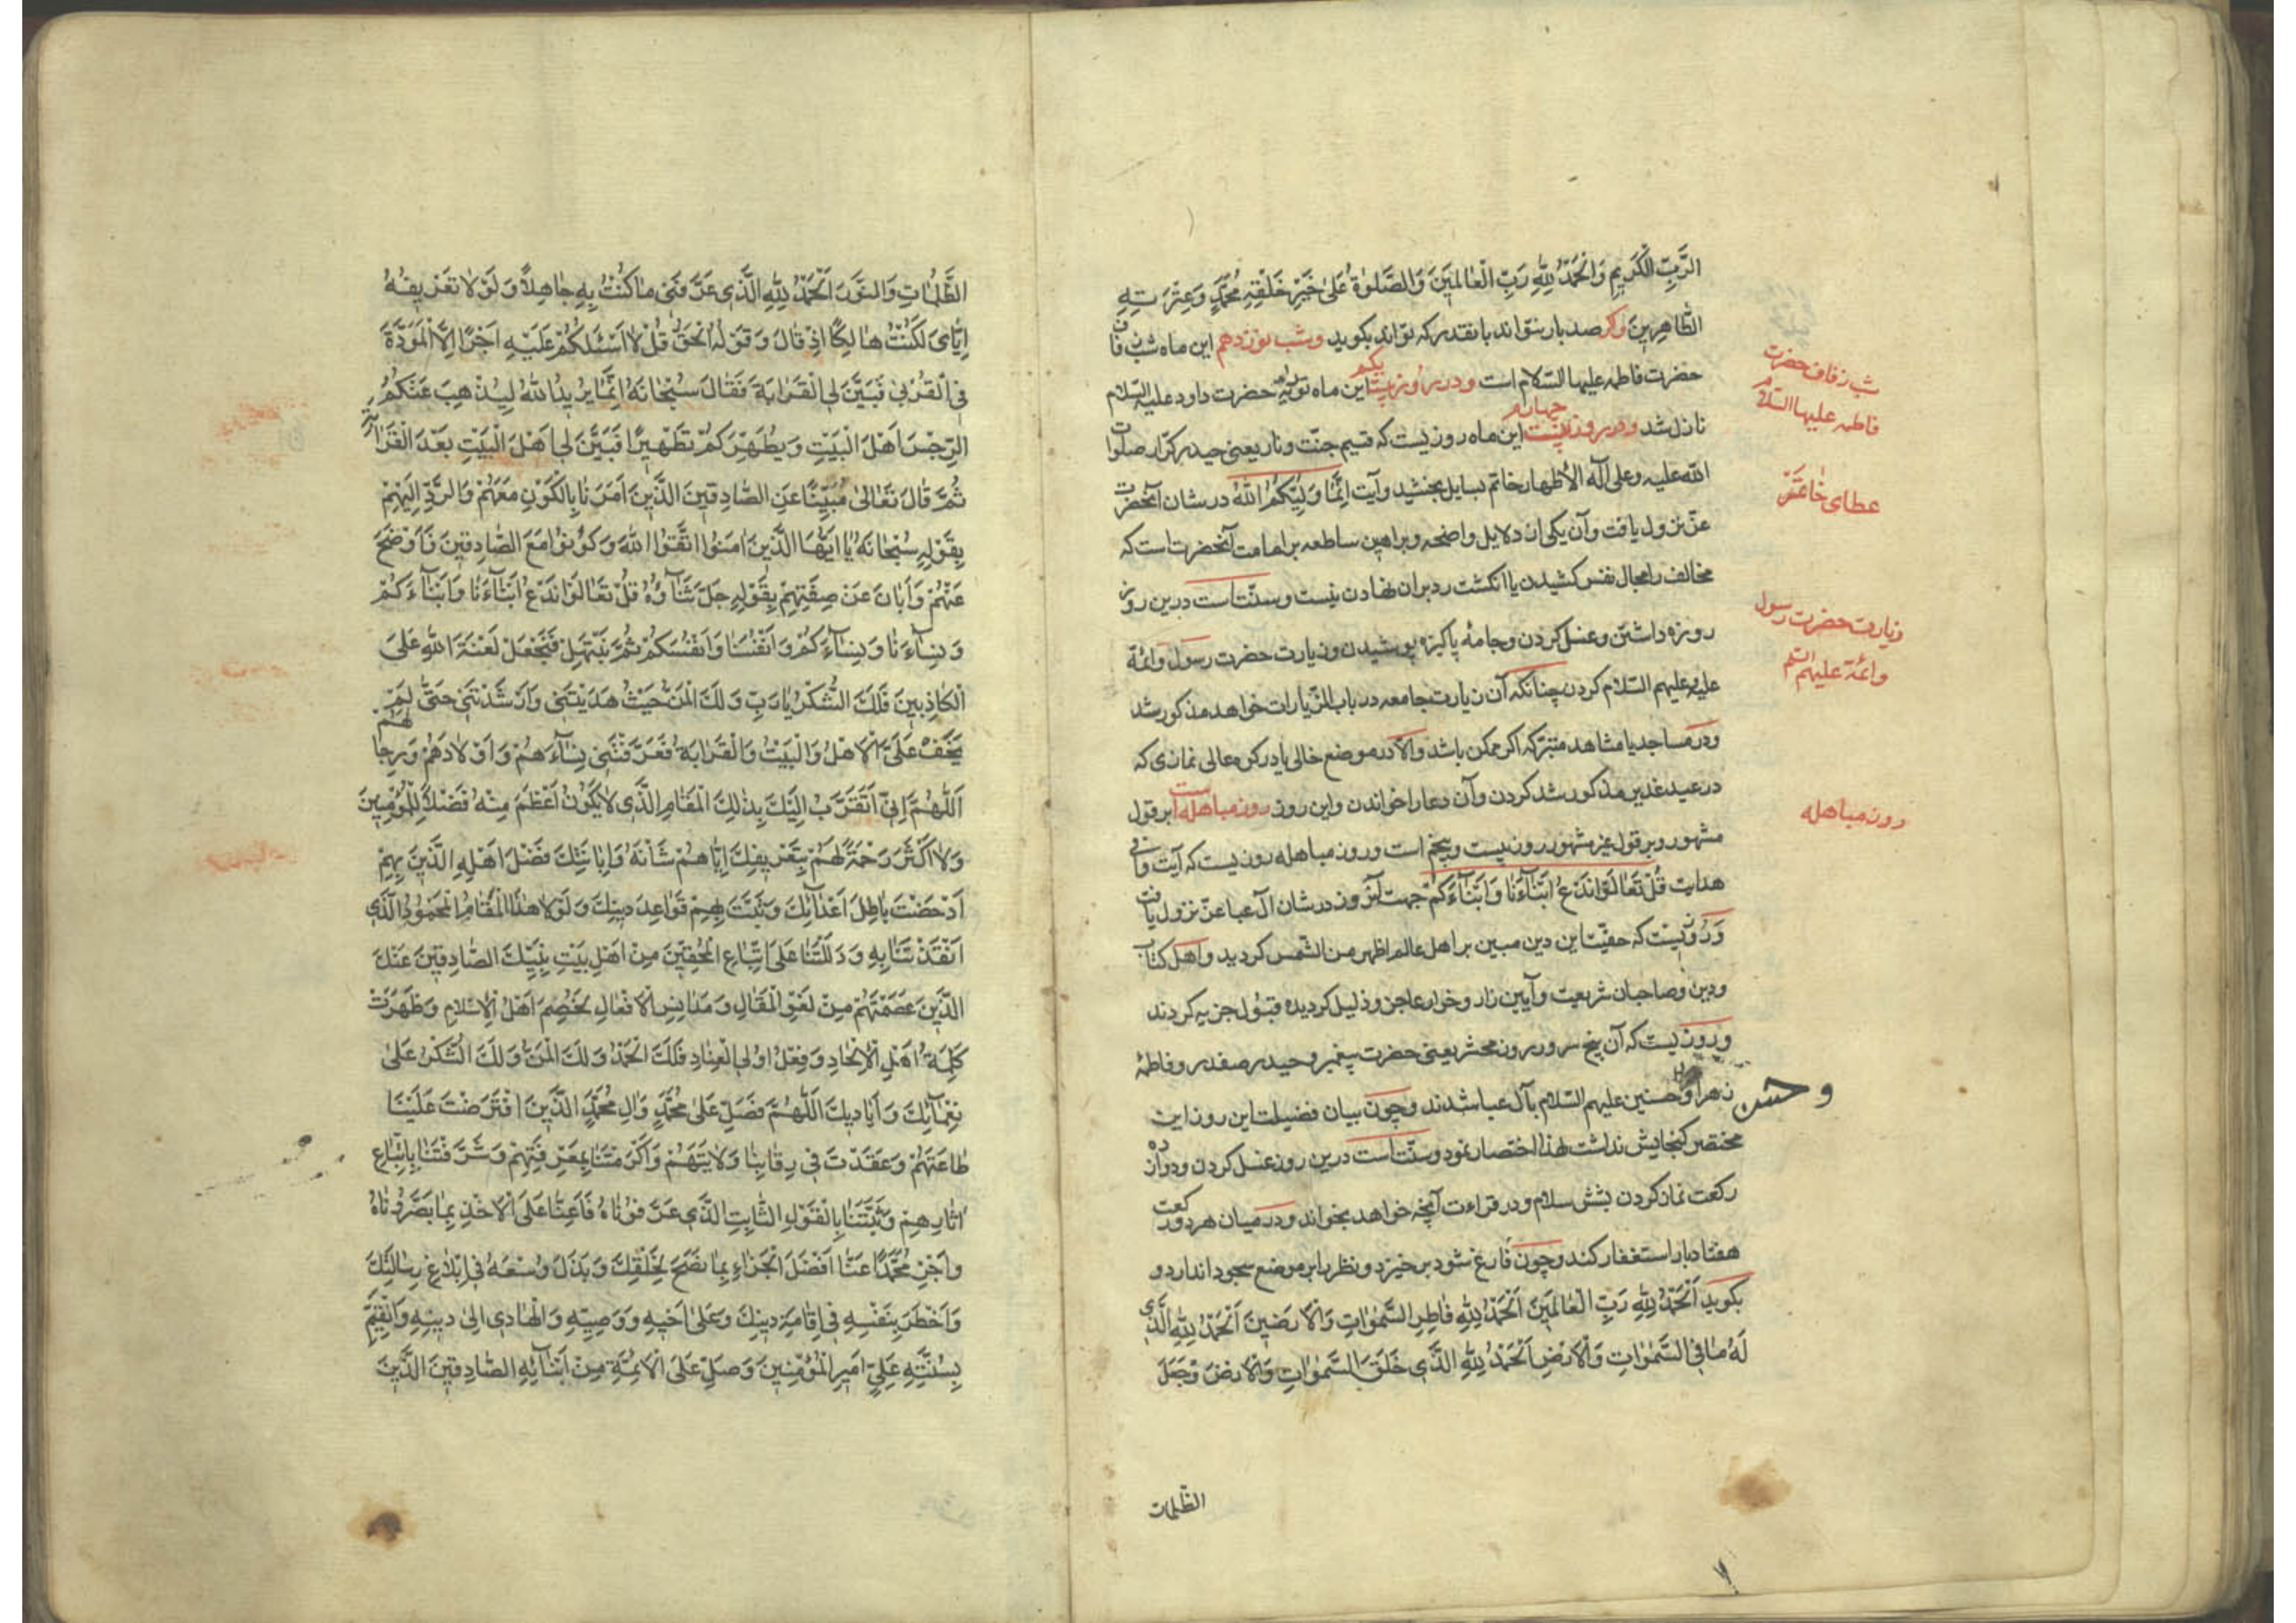 الرَّبِّ الْكَرِيمِ وَالْحَمْدُ لِلّٰهِ رَبِّ الْعَالَمِينَ وَالصَّلٰوةُ عَلٰى خَيْرِ خَلْقِهِ مُحَمَّدٍ وَعِتْرَتِهِ
الطَّاهِرِينَ وکر صد بار بتواند بانقدر که تواند بکوید وشب نوزدهم این ماه شب زفاف
حضرت فاطمه علیها السّلام است ودر روز بیست یکم این ماه توریة حضرت داود علیه السلام
نازل شد ودر روز بیست چهارم این ماه روزیست که قسیم جنّت ونار یعنی حیدر کرّار صلوات
الله علیه وعلی آله الأطهار خاتم بسایل بخشید وآیت اِنَّمَا وَلِیُّکُمُ اللهُ در شان آنحضرت
عزّ نزول یافت وآن یکی از دلایل واضحه وبراهین ساطعه بر امامت آنحضرت است که
مخالف را مجال نفس کشیدن یا انکشت رد بران نهادن نیست وسنّتست درین روز
روزه داشتن وغسل کردن وجامهٔ پاکیزه پوشیدن وزیارت حضرت رسول وائمّهٔ
علیه وعلیهم السّلام کردن چنانکه آن زیارت جامعه در باب الزّیارات خواهد مذکور شد
ودر مساجد یا مشاهد متبرّکه اکر ممکن باشد والّا در موضع خالی یا در کوه عالی نمازی که
در عید غدیر مذکور شد کردن وآن دعا را خواندن واین روز روز مباهله است بر قول
مشهور وبر قول غیر مشهور روز بیست وپنجم است وروز مباهله روزیست که آیت وافی
هدایت قُلْ تَعَالَوْا نَدْعُ اَبْنَآءَنَا وَاَبْنَآءَکُمْ جهت آنروز در شان آل عبا عزّ نزول یافت
وروزیست که حقیّت این دین مبین بر اهل عالم اظهر من الشّمس کردید واهل کتاب
ودین وصاحبان شریعت وآیین زار وخوار عاجز وذلیل کردیده قبول جزیه کردند
وروزیست که آن پنج سرور روز محشر یعنی حضرت پیغمبر وحیدر صفدر وفاطمهٔ
زهرا وحسنین علیهم السّلام بآل عبا شدند وچون بیان فضیلت این روز این
محنتصر کنجایش نداشت لهذا اختصار نمود وسنّتست درین روز غسل کردن ودوازده
رکعت نماز کردن بشش سلام ودر قراءت آنچه خواهد بخواند ودر میان هر دو رکعت
هفتاد بار استغفار کند وچون فارغ شود برخیزد ونظر برابر موضع سجود اندازد و
بکوید اَلْحَمْدُ لِلّٰهِ رَبِّ الْعَالَمِینَ اَلْحَمْدُ لِلّٰهِ فَاطِرِ السَّمٰوَاتِ وَالْاَرَضِینَ اَلْحَمْدُ لِلّٰهِ الَّذِی
لَهُ مَا فِی السَّمٰوَاتِ وَالْاَرْضِ اَلْحَمْدُ لِلّٰهِ الَّذِی خَلَقَ السَّمٰوَاتِ وَالْاَرْضَ وَجَعَلَ
الظّلمات
شب زفاف حضرت
فاطمه علیها السّلام
عطای خاتم
زیارت حضرت رسول
وائمّه علیهم السّلم
روز مباهله
و حسن
الظُّلُمَاتِ وَالنُّورَ اَلْحَمْدُ لِلّٰهِ الَّذِی عَرَّفَنِی مَا کُنْتُ بِهِ جَاهِلًا وَلَوْ لَا تَعْرِیفُهُ
اِیَّایَ لَکُنْتُ هَالِکًا اِذْ قَالَ وَقَوْلُهُ الْحَقُّ قُلْ لَا اَسْئَلُکُمْ عَلَیْهِ اَجْرًا اِلَّا الْمَوَدَّةَ
فِی الْقُرْبٰی فَبَیَّنَ لِیَ الْقَرَابَةَ فَقَالَ سُبْحَانَهُ اِنَّمَا یُرِیدُ اللهُ لِیُذْهِبَ عَنْکُمُ
الرِّجْسَ اَهْلَ الْبَیْتِ وَیُطَهِّرَکُمْ تَطْهِیرًا فَبَیَّنَ لِی اَهْلَ الْبَیْتِ بَعْدَ الْقَرَابَةِ
ثُمَّ قَالَ تَعَالٰی مُبَیِّنًا عَنِ الصَّادِقِینَ الَّذِینَ اَمَرَنَا بِالْکَوْنِ مَعَهُمْ وَالرَّدِّ اِلَیْهِمْ
بِقَوْلِهِ سُبْحَانَهُ یَا اَیُّهَا الَّذِینَ اٰمَنُوا اتَّقُوا اللهَ وَکُونُوا مَعَ الصَّادِقِینَ فَاَوْضَحَ
عَنْهُمْ وَاَبَانَ عَنْ صِفَتِهِمْ بِقَوْلِهِ جَلَّ ثَنَآؤُهُ قُلْ تَعَالَوْا نَدْعُ اَبْنَآءَنَا وَاَبْنَآءَکُمْ
وَنِسَآءَنَا وَنِسَآءَکُمْ وَاَنْفُسَنَا وَاَنْفُسَکُمْ ثُمَّ نَبْتَهِلْ فَنَجْعَلْ لَعْنَةَ اللهِ عَلَی
الْکَاذِبِینَ فَلَکَ الشُّکْرُ یَا رَبِّ وَلَکَ الْمَنُّ حَیْثُ هَدَیْتَنِی وَاَرْشَدْتَنِی حَتّٰی لَمْ
یَخْفَ عَلَیَّ الْاَهْلُ وَالْبَیْتُ وَالْقَرَابَةُ فَعَرَّفْتَنِی نِسَآءَهُمْ وَاَوْلَادَهُمْ وَرِجَالَهُمْ
اَللّٰهُمَّ اِنِّی اَتَقَرَّبُ اِلَیْکَ بِذٰلِکَ الْمَقَامِ الَّذِی لَا یَکُونُ اَعْظَمَ مِنْهُ فَضْلًا لِلْمُؤْمِنِینَ
وَلَا اَکْثَرَ رَحْمَةً لَهُمْ بِتَعْرِیفِکَ اِیَّاهُمْ شَاْنَهُ وَاِبَانَتِکَ فَضْلَ اَهْلِهِ الَّذِینَ بِهِمْ
اَدْحَضْتَ بَاطِلَ اَعْدَآئِکَ وَثَبَّتَّ بِهِمْ قَوَاعِدَ دِینِکَ وَلَوْ لَا هٰذَا الْمَقَامُ الْمَحْمُودُ الَّذِی
اَنْقَذْتَنَا بِهِ وَدَلَلْتَنَا عَلَی اتِّبَاعِ الْمُحِقِّینَ مِنْ اَهْلِ بَیْتِ نَبِیِّکَ الصَّادِقِینَ عَنْکَ
الَّذِینَ عَصَمْتَهُمْ مِنْ لَغْوِ الْمَقَالِ وَمَدَانِسِ الْاَفْعَالِ لَخُصِمَ اَهْلُ الْاِسْلَامِ وَظَهَرَتْ
کَلِمَةُ اَهْلِ الْاِلْحَادِ وَفِعْلُ اُولِی الْعِنَادِ فَلَکَ الْحَمْدُ وَلَکَ الْمَنُّ وَلَکَ الشُّکْرُ عَلٰی
نَعْمَآئِکَ وَاَیَادِیکَ اَللّٰهُمَّ فَصَلِّ عَلٰی مُحَمَّدٍ وَاٰلِ مُحَمَّدٍ الَّذِینَ افْتَرَضْتَ عَلَیْنَا
طَاعَتَهُمْ وَعَقَدْتَ فِی رِقَابِنَا وَلَایَتَهُمْ وَاَکْرَمْتَنَا بِمَعْرِفَتِهِمْ وَشَرَّفْتَنَا بِاتِّبَاعِ
اٰثَارِهِمْ وَثَبَّتْنَا بِالْقَوْلِ الثَّابِتِ الَّذِی عَرَّفُونَاهُ فَاَعِنَّا عَلَی الْاَخْذِ بِمَا بَصَّرُونَاهُ
وَاَجْزِ مُحَمَّدًا عَنَّا اَفْضَلَ الْجَزَاءِ بِمَا نَصَحَ لِخَلْقِکَ وَبَذَلَ وُسْعَهُ فِی اِبْلَاغِ رِسَالَتِکَ
وَاَخْطَرَ بِنَفْسِهِ فِی اِقَامَةِ دِینِکَ وَعَلٰی اَخِیهِ وَوَصِیِّهِ وَالْهَادِی اِلٰی دِینِهِ وَالْقَیِّمِ
بِسُنَّتِهِ عَلِیٍّ اَمِیرِ الْمُؤْمِنِینَ وَصَلِّ عَلَی الْاَئِمَّةِ مِنْ اَبْنَآئِهِ الصَّادِقِینَ الَّذِینَ